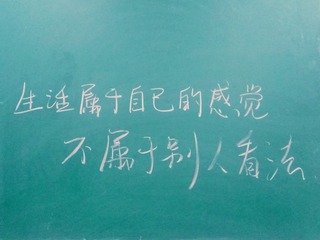 生活属于自己的感觉
不属于别人看法